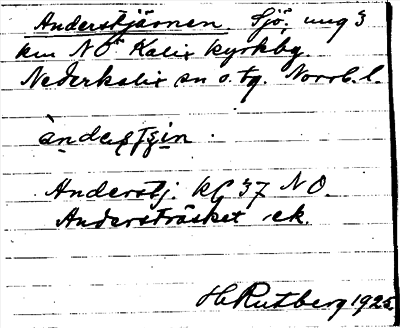 Anderstjärnen Sjö. ung 3
km NO Kalix kyrkby.
Nederkalix sn o. tg. Norrb. l.
Anderstj. kG 37 NO.
Andersträsket ek.
H Rutberg 1925